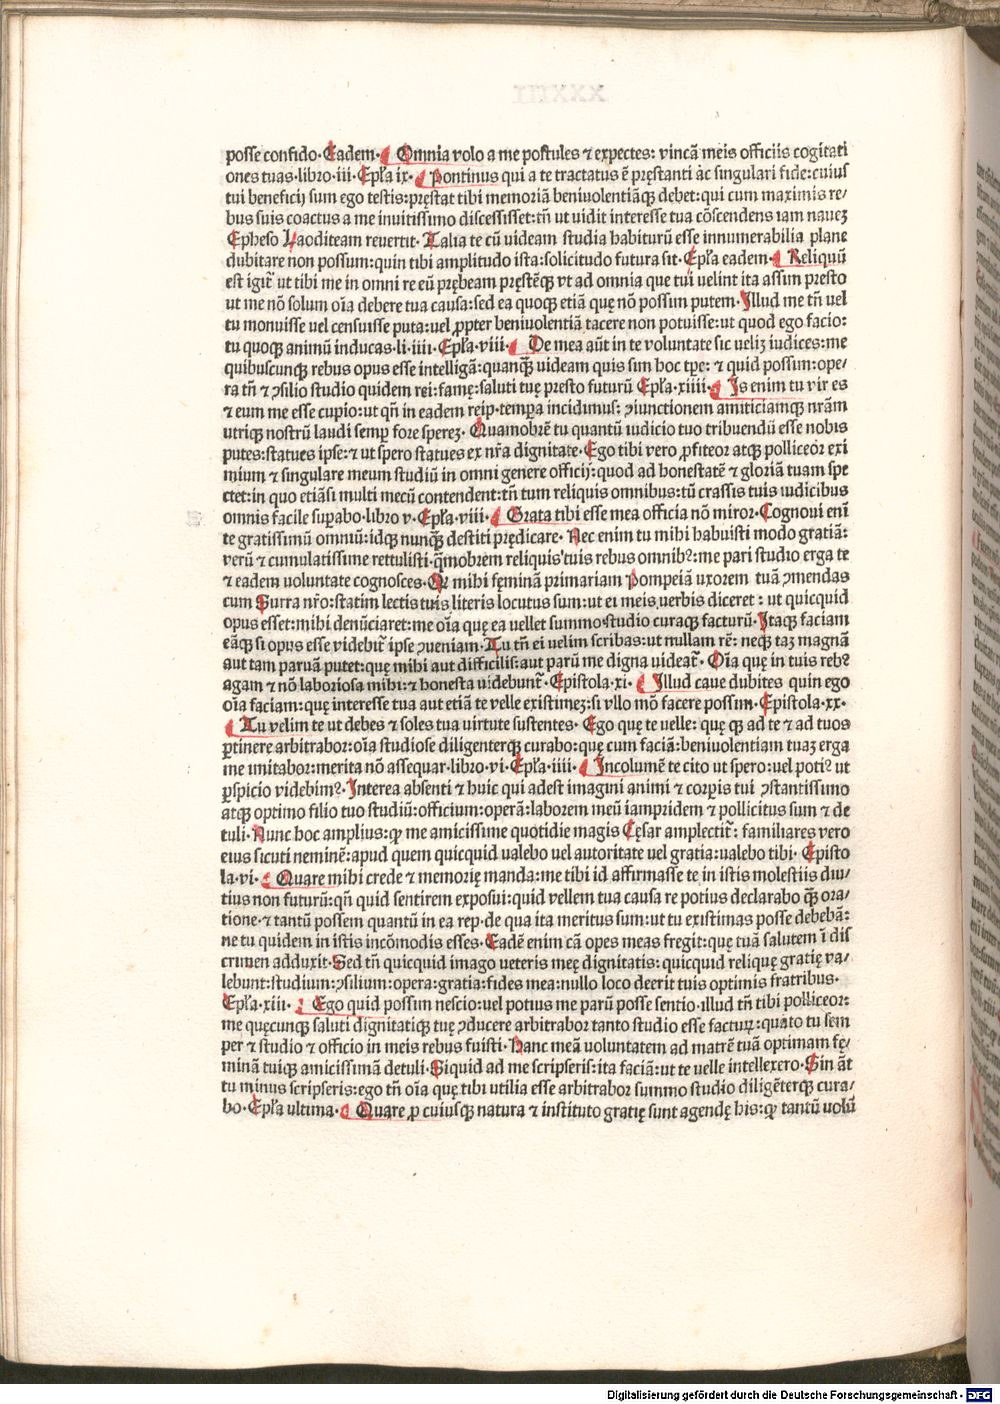 posse confido·Eadem·Omnia volo a me postules ⁊ expectes: vincā meis officiis cogitati
ones tuas·libro·iii·Epła ix·Pontinus qui a te tractatus ē pręstanti ac singulari fide:cuius
tui beneficij sum ego testis:pręstat tibi memoriā beniuolentiāqꝫ debet:qui cum maximis re/
bus suis coactus a me inuitissimo discessisset:tn̄ ut uidit interesse tua cōscendens iam nauez
Epheso Laoditeam reuertit·Talia te cū uideam studia habiturū esse innumerabilia plane
dubitare non possum:quin tibi amplitudo ista:solicitudo futura sit·Epła eadem·Reliquū
est igit᷑ ut tibi me in omni re eū prębeam pręstēqꝫ vt ad omnia que tui uelint ita assim presto
ut me nō solum oīa debere tua causa:sed ea quoqꝫ etiā quę nō possum putem·Illud me tn̄ uel
tu monuisse uel censuisse puta:uel ꝓpter beniuolentiā tacere non potuisse:ut quod ego facio:
tu quoqꝫ animū inducas·li·iiii·Epła·viii·De mea aūt in te voluntate sic ueliꝫ iudices:me
quibuscunqꝫ rebus opus esse intelligā:quanqꝫ̄ uideam quis sim hoc tp̄e: ⁊ quid possim:ope/
ra tn̄ ⁊ ꝯsilio studio quidem rei:famę:saluti tuę presto futurū Epła·xiiii·Is enim tu vir es
⁊ eum me esse cupio:ut qn̄ in eadem reip·tempa incidimus: ꝯiunctionem amiticiamqꝫ nr̄am
utriqꝫ nostrū laudi semp fore sperez·Quamobrē tu quantū iudicio tuo tribuendū esse nobis
putes:statues ipse:⁊ ut spero statues ex nr̄a dignitate·Ego tibi vero ꝓfiteor atqꝫ polliceor exi
mium ⁊ singulare meum studiū in omni genere officij:quod ad honestatē ⁊ gloriā tuam spe
ctet:in quo etiāsi multi mecū contendent:tn̄ tum reliquis omnibus:tū crassis tuis iudicibus
omnis facile supabo·libro v·Epła·viii·Grata tibi esse mea officia nō miror·Cognoui enī
te gratissimū omniū:idqꝫ nunqꝫ̄ destiti prędicare·Nec enim tu mihi habuisti modo gratiā:
verū ⁊ cumulatissime rettulisti·qͫobrem reliquis tuis rebus omnibꝰ:me pari studio erga te
⁊ eadem voluntate cognosces·Qꝛ mihi fęminā primariam Pompeiā uxorem tuā ꝯmendas
cum Surra nr̄o:statim lectis tuis literis locutus sum:ut ei meis verbis diceret: ut quicquid
opus esset:mihi denūciaret:me oīa quę ea uellet summo studio curaqꝫ facturū·Itaqꝫ faciam
eāqꝫ si opus esse videbit᷑ ipse ꝯueniam·Tu tn̄ ei uelim scribas:ut nullam rē: neqꝫ taꝫ magnā
aut tam paruā putet:quę mihi aut difficilis:aut parū me digna uideat᷑·Oīa quę in tuis rebꝰ
agam ⁊ nō laboriosa mihi:⁊ honesta uidebunt᷑·Epistola·xi·Illud caue dubites quin ego
oīa faciam:quę interesse tua aut etiā te velle existimeꝫ:si vllo mō facere possum·Epistola·xx·
Tu velim te ut debes ⁊ soles tua virtute sustentes·Ego quę te uelle: quę qꝫ ad te ⁊ ad tuos
ꝑtinere arbitrabor:oīa studiose diligenterqꝫ curabo:quę cum faciā:beniuolentiam tuaꝫ erga
me imitabor:merita nō assequar·libro·vi·Epła·iiii·Incolumē te cito ut spero:uel potiꝰ ut
ꝑspicio videbimꝰ·Interea absenti ⁊ huic qui adest imagini animi ⁊ corpis tui ꝯstantissimo
atqꝫ optimo filio tuo studiū:officium:operā:laborem meū iampridem ⁊ pollicitus sum ⁊ de
tuli·Nunc hoc amplius:qꝙ me amicissime quotidie magis Cęsar amplectit᷑: familiares vero
eius sicuti neminē:apud quem quicquid ualebo uel autoritate uel gratia:ualebo tibi·Episto
la·vi·Quare mihi crede ⁊ memorię manda:me tibi id affirmasse te in istis molestiis diu/
tius non futurū:qn̄ quid sentirem exposui:quid vellem tua causa re potius declarabo qꝫ̄ ora/
tione·⁊ tantū possem quantū in ea rep·de qua ita meritus sum:ut tu existimas posse debebā:
ne tu quidem in istis incōmodis esses·Eadē enim cā opes meas fregit:quę tuā salutem ī dis
crimen adduxit·Sed tn̄ quicquid imago veteris meę dignitatis:quicquid reliquę gratię va/
lebunt:studium:ꝯsilium:opera:gratia:fides mea:nullo loco deerit tuis optimis fratribus·
Epła·xiii·Ego quid possum nescio:uel potius me parū posse sentio·illud tn̄ tibi polliceor:
me quęcunqꝫ saluti dignitatiqꝫ tuę ꝯducere arbitrabor tanto studio esse facturꝫ:quāto tu sem
per ⁊ studio ⁊ officio in meis rebus fuisti·Hanc meā voluntatem ad matrē tuā optimam fę/
minā tuiqꝫ amicissimā detuli·Siquid ad me scripseris:ita faciā:ut te velle intellexero·Sin āt
tu minus scripseris:ego tn̄ oīa quę tibi utilia esse arbitrabor summo studio diligēterqꝫ cura/
bo·Epła ultima·Quare ꝓ cuiusqꝫ natura ⁊ instituto gratię sunt agendę his:qꝙ tantū uolū
Digitalisierung gefördert durch die Deutsche Forschungsgemeinschaft - DFG